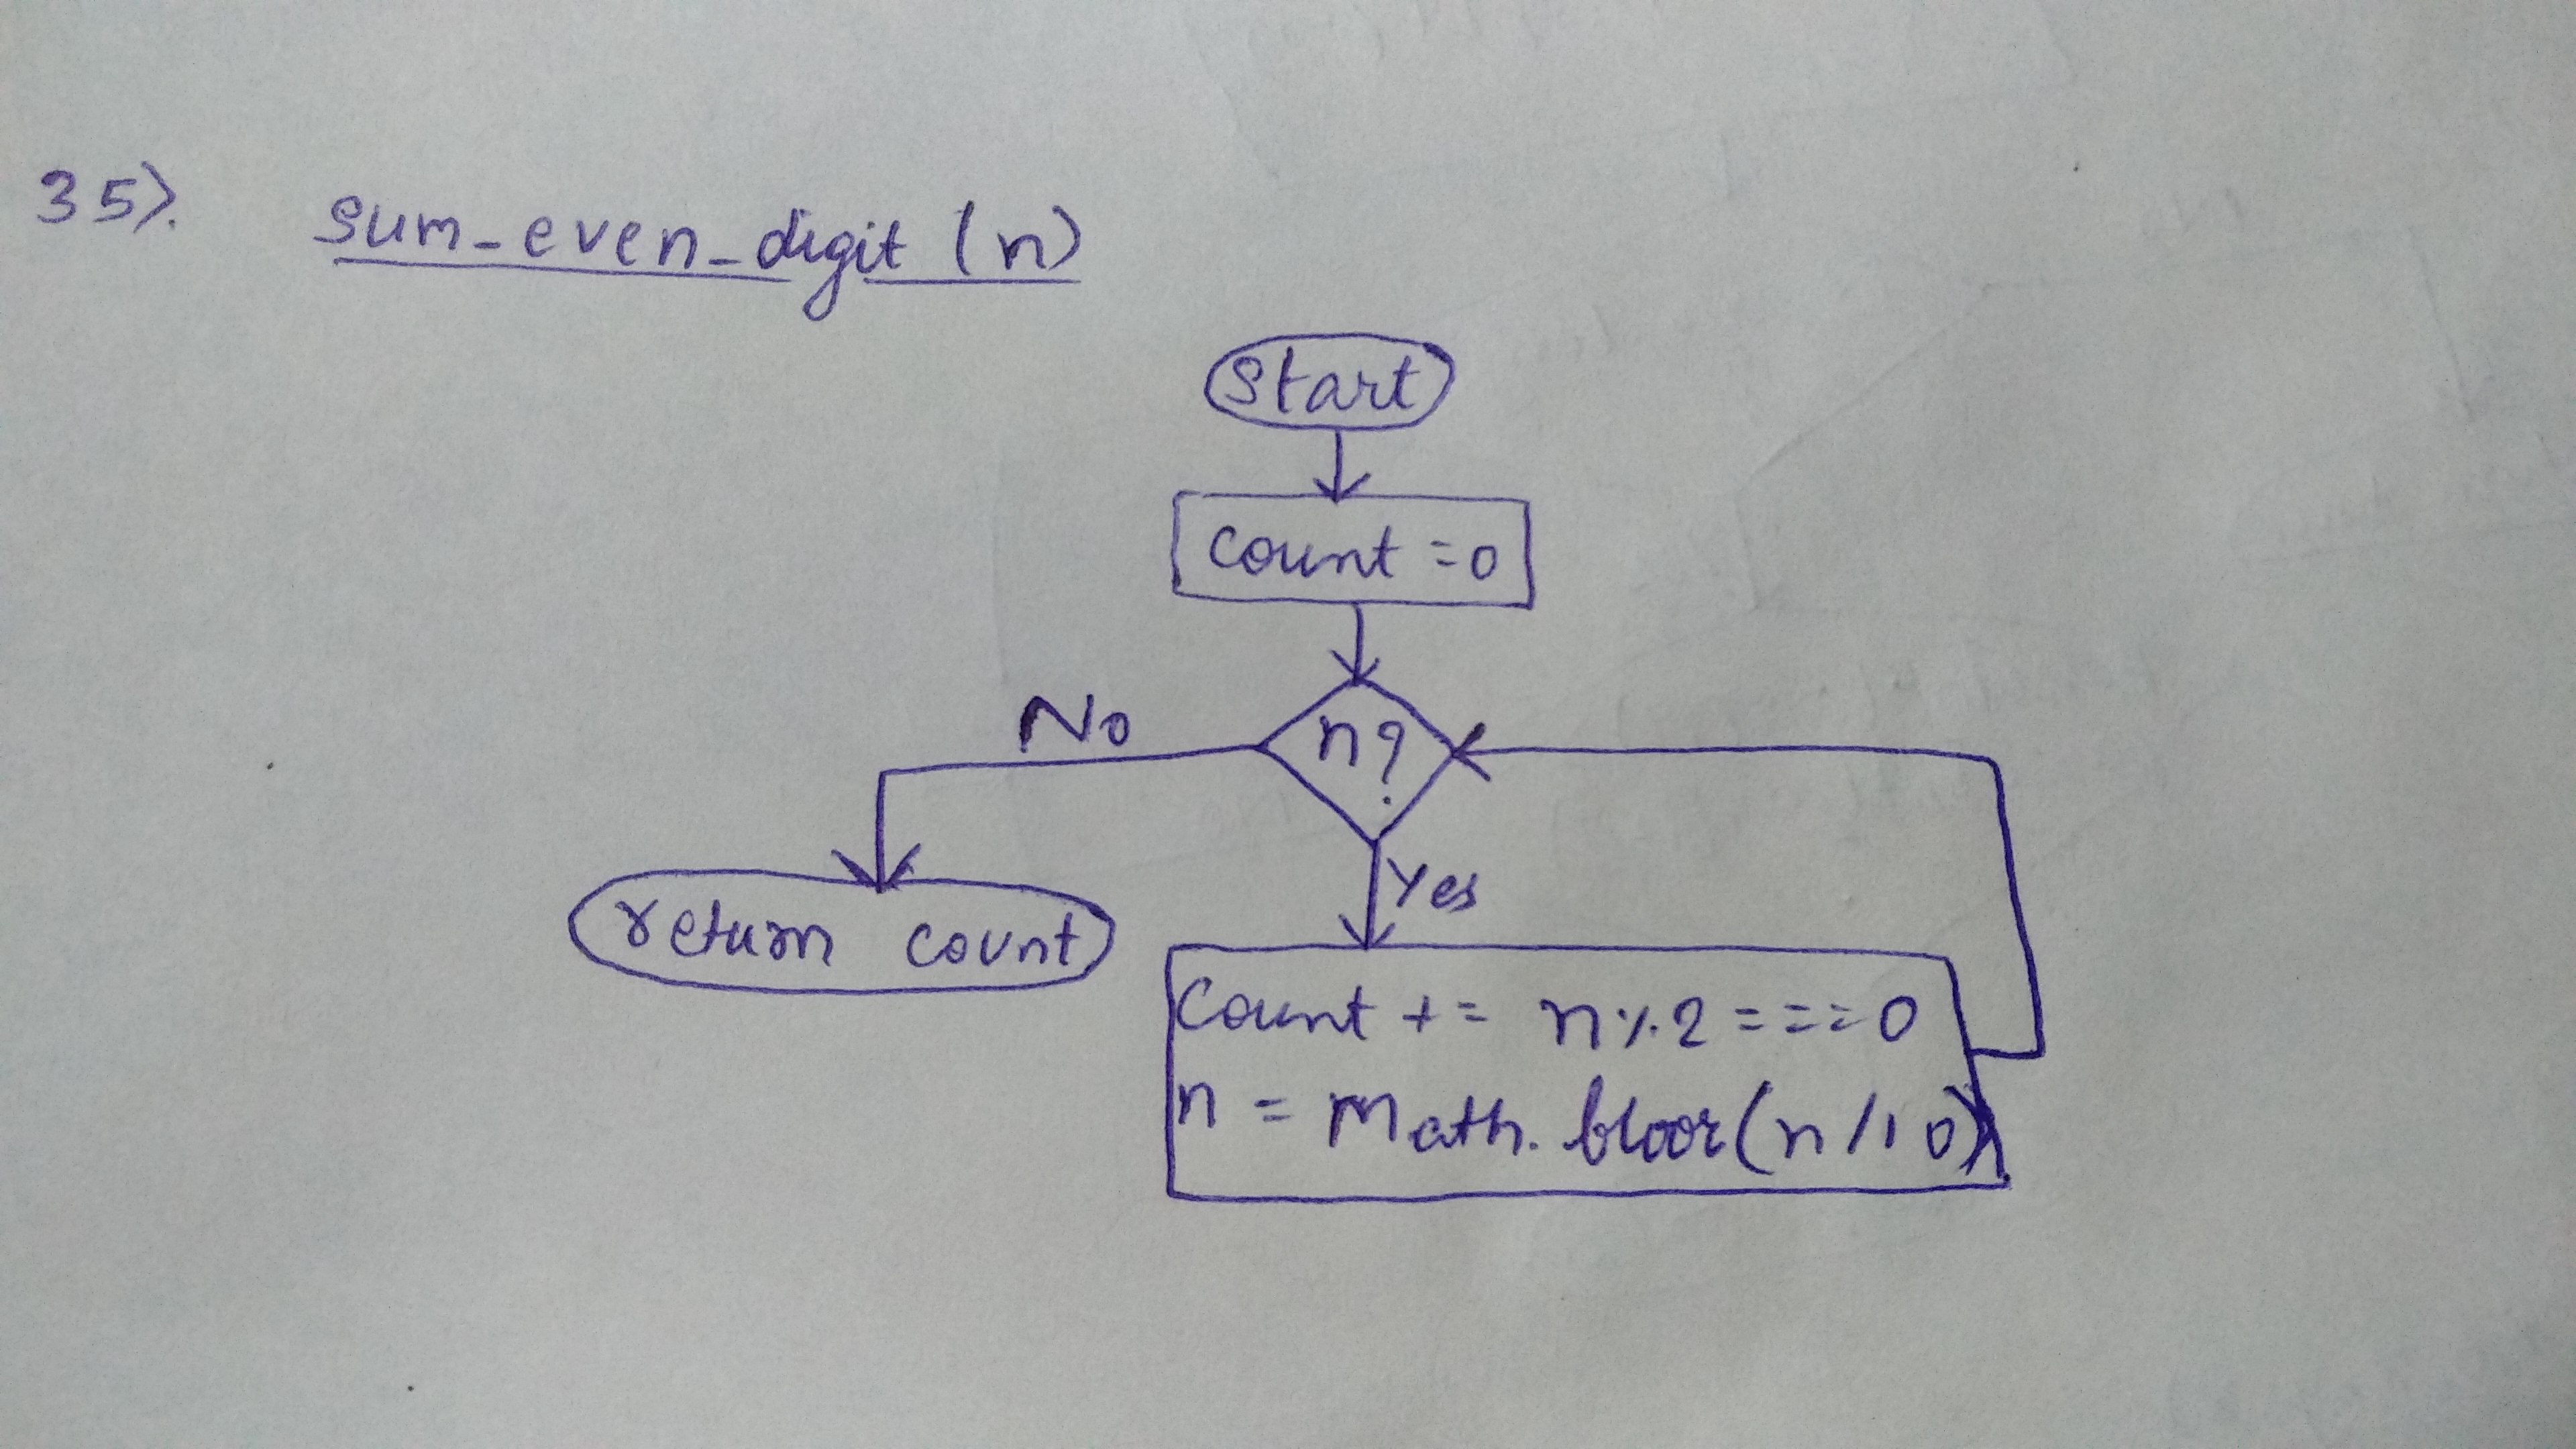 35).
sum-even-digit (n)
Start
count = 0
n?
No
Yes
return count
Count += n%2 === 0
n = Math.floor(n/10)